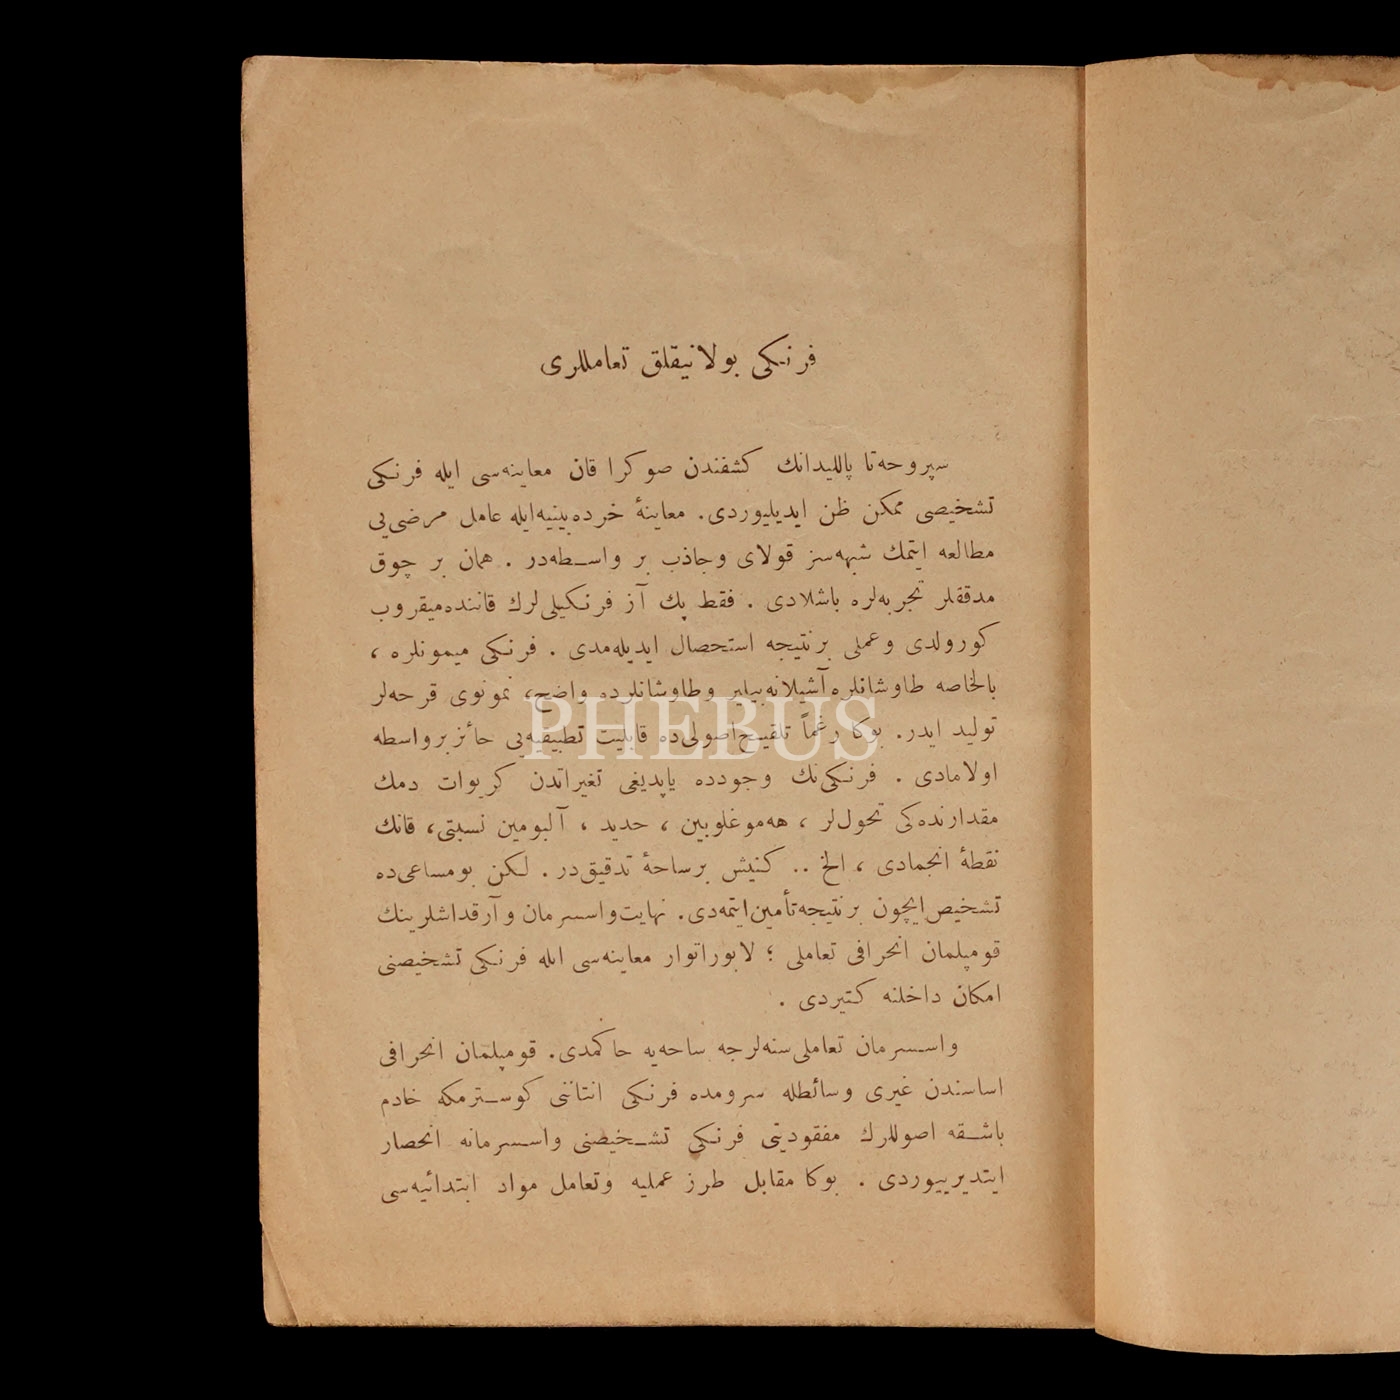 فرنكی بولانیقلق تعاملری
سپروحه‌تا پاللیدانك كشفندن صوكرا قان معاینه‌سی ایله فرنكی
تشخیصی ممكن ظن ایدیلیوردی. معاینهٔ خرده‌بینیه‌ایله عامل مرضی‌یی
مطالعه ایتمك شبهه‌سز قولای وجاذب بر واسطه‌در . همان بر چوق
مدققلر تجربه‌لره باشلادی . فقط پك آز فرنكیلی‌لرك قاننده‌میقروب
كورولدی وعملی برنتیجه استحصال ایدیله‌مدی . فرنكی میمونلره ،
بالخاصه طاوشانلره‌آشیلانه‌بیلیر وطاوشانلرده واضح، نمونوی قرحه‌لر
تولید ایدر. بوكا رغماً تلقیح‌اصولی‌ده قابلیت تطبیقیه‌یی حائز برواسطه
اولامادی . فرنكی‌نك وجودده یاپدیغی تغیراتدن كریوات دمك
مقدارنده‌كی تحول‌لر ، هه‌موغلوبین ، حدید ، آلبومین نسبتی، قانك
نقطهٔ انجمادی ، الخ .. كنیش برساحهٔ تدقیق‌در . لكن بومساعی‌ده
تشخیص‌ایچون برنتیجه‌تأمین‌ایتمه‌دی. نهایت‌واسسرمان وآرقداشلرینك
قومپلمان انحرافی تعاملی ؛ لابوراتوار معاینه‌سی ایله فرنكی تشخیصنی
امكان داخلنه كتیردی .
واسسرمان تعاملی‌سنه‌لرجه ساحه‌یه حاكمدی. قومپلمان انحرافی
اساسندن غیری وسائطله سرومده فرنكی انتاننی كوسترمكه خادم
باشقه اصوللرك مفقودیتی فرنكی تشخیصنی واسسرمانه انحصار
ایتدیرییوردی . بوكا مقابل طرز عملیه وتعامل مواد ابتدائیه‌سی
PHEBUS